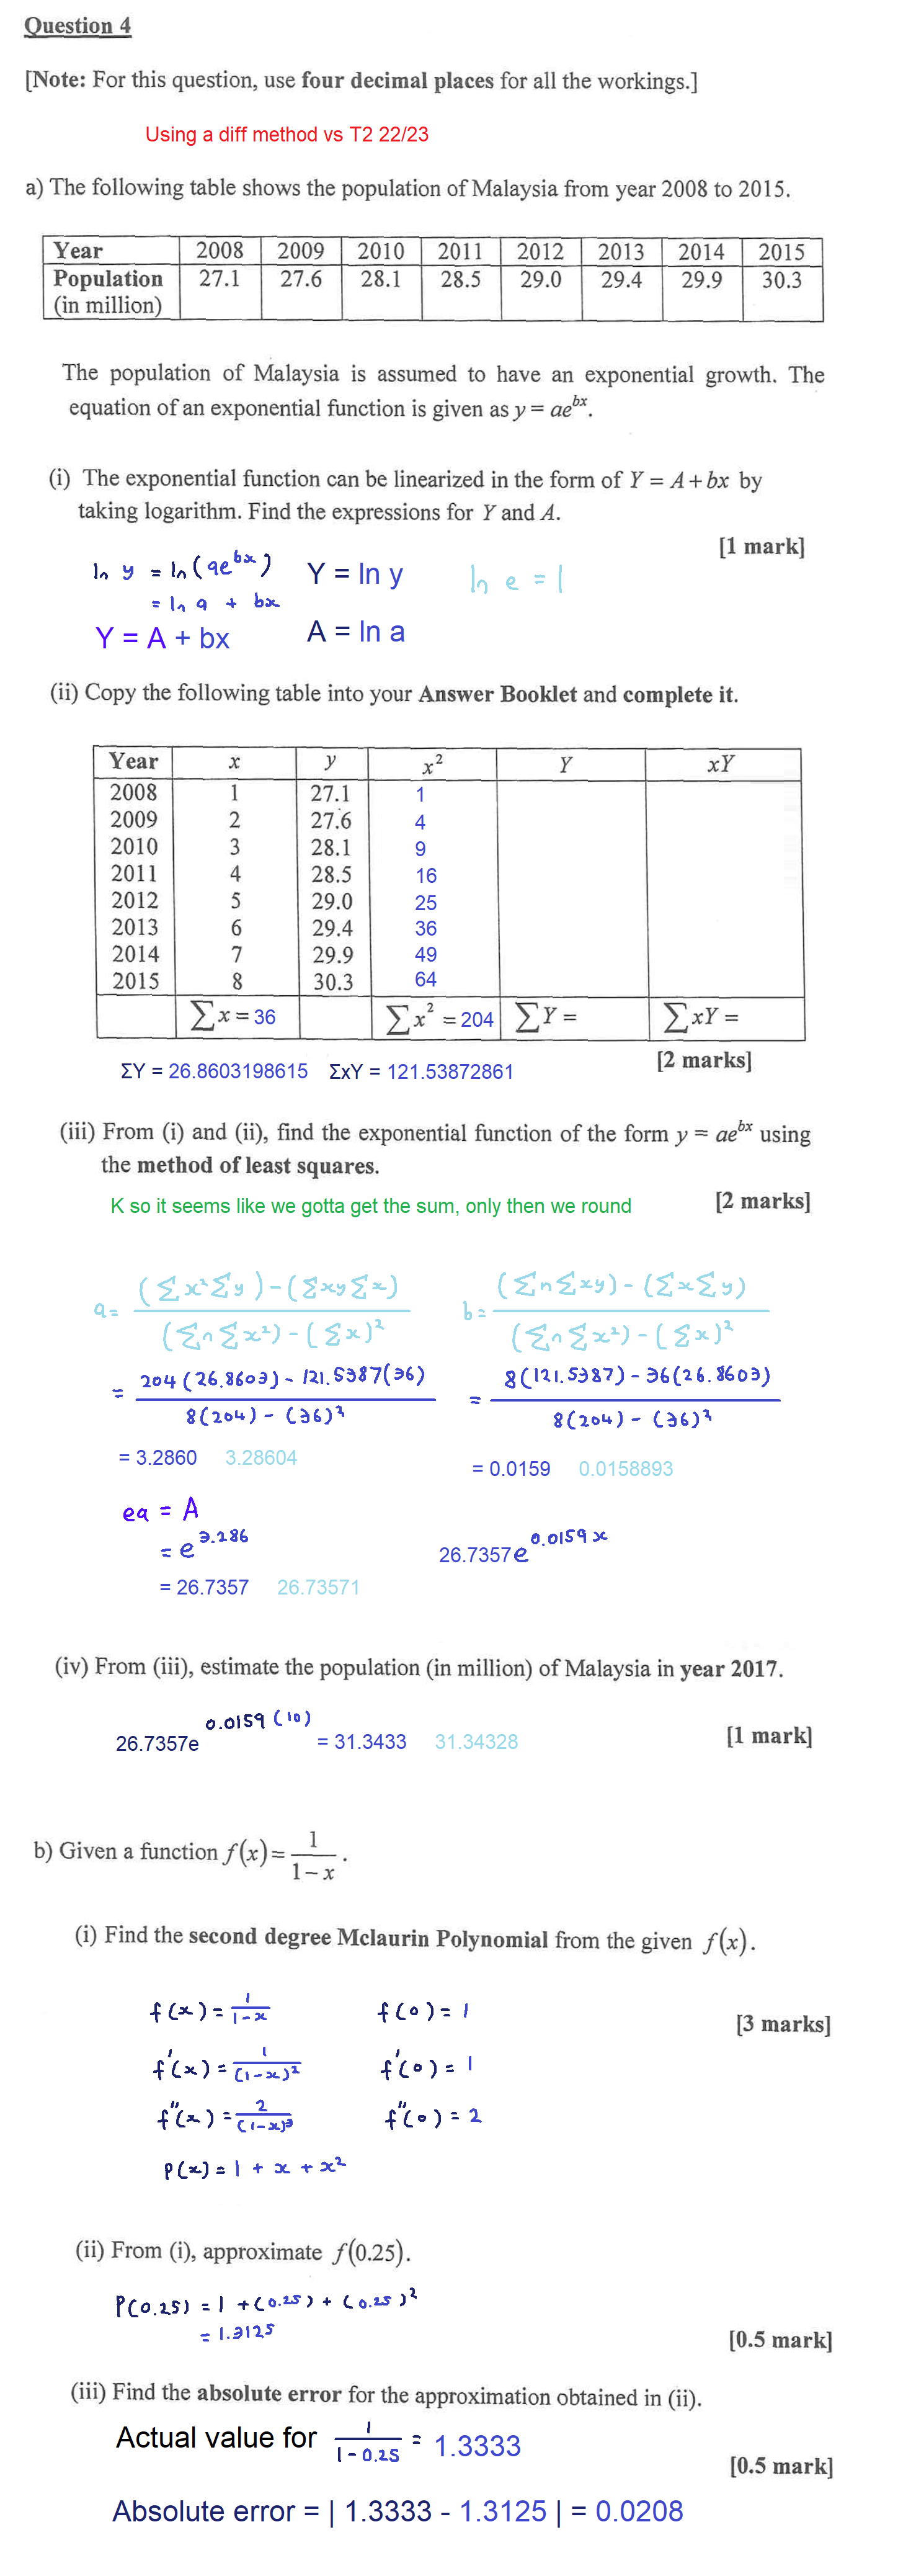 Question 4
[Note: For this question, use four decimal places for all the workings.]
Using a diff method vs T2 22/23
a) The following table shows the population of Malaysia from year 2008 to 2015.
Year 2008 2009 2010 2011 2012 2013 2014 2015
Population 27.1 27.6 28.1 28.5 29.0 29.4 29.9 30.3
(in million)
The population of Malaysia is assumed to have an exponential growth. The
equation of an exponential function is given as y = ae^{bx}.
(i) The exponential function can be linearized in the form of Y = A + bx by
taking logarithm. Find the expressions for Y and A.
[1 mark]
ln y = ln(ae^{bx}) Y = ln y ln e = 1
= ln a + bx
Y = A + bx A = ln a
(ii) Copy the following table into your Answer Booklet and complete it.
Year x y x² Y xY
2008 1 27.1 1
2009 2 27.6 4
2010 3 28.1 9
2011 4 28.5 16
2012 5 29.0 25
2013 6 29.4 36
2014 7 29.9 49
2015 8 30.3 64
∑x = 36 ∑x² = 204 ∑Y = ∑xY =
[2 marks]
ΣY = 26.8603198615 ΣxY = 121.53872861
(iii) From (i) and (ii), find the exponential function of the form y = ae^{bx} using
the method of least squares.
[2 marks]
K so it seems like we gotta get the sum, only then we round
a = ((Σx²Σy) - (ΣxyΣx)) / ((ΣnΣx²) - (Σx)²) b = ((ΣnΣxy) - (ΣxΣy)) / ((ΣnΣx²) - (Σx)²)
= (204(26.8603) - 121.5387(36)) / (8(204) - (36)²) = (8(121.5387) - 36(26.8603)) / (8(204) - (36)²)
= 3.2860 3.28604 = 0.0159 0.0158893
ea = A
= e^{3.286} 26.7357e^{0.0159x}
= 26.7357 26.73571
(iv) From (iii), estimate the population (in million) of Malaysia in year 2017.
26.7357e^{0.0159(10)} = 31.3433 31.34328
[1 mark]
b) Given a function f(x) = 1/(1-x).
(i) Find the second degree Mclaurin Polynomial from the given f(x).
f(x) = 1/(1-x) f(0) = 1
[3 marks]
f'(x) = 1/(1-x)² f'(0) = 1
f''(x) = 2/(1-x)³ f''(0) = 2
P(x) = 1 + x + x²
(ii) From (i), approximate f(0.25).
P(0.25) = 1 + (0.25) + (0.25)²
= 1.3125
[0.5 mark]
(iii) Find the absolute error for the approximation obtained in (ii).
Actual value for 1/(1-0.25) = 1.3333
[0.5 mark]
Absolute error = | 1.3333 - 1.3125 | = 0.0208